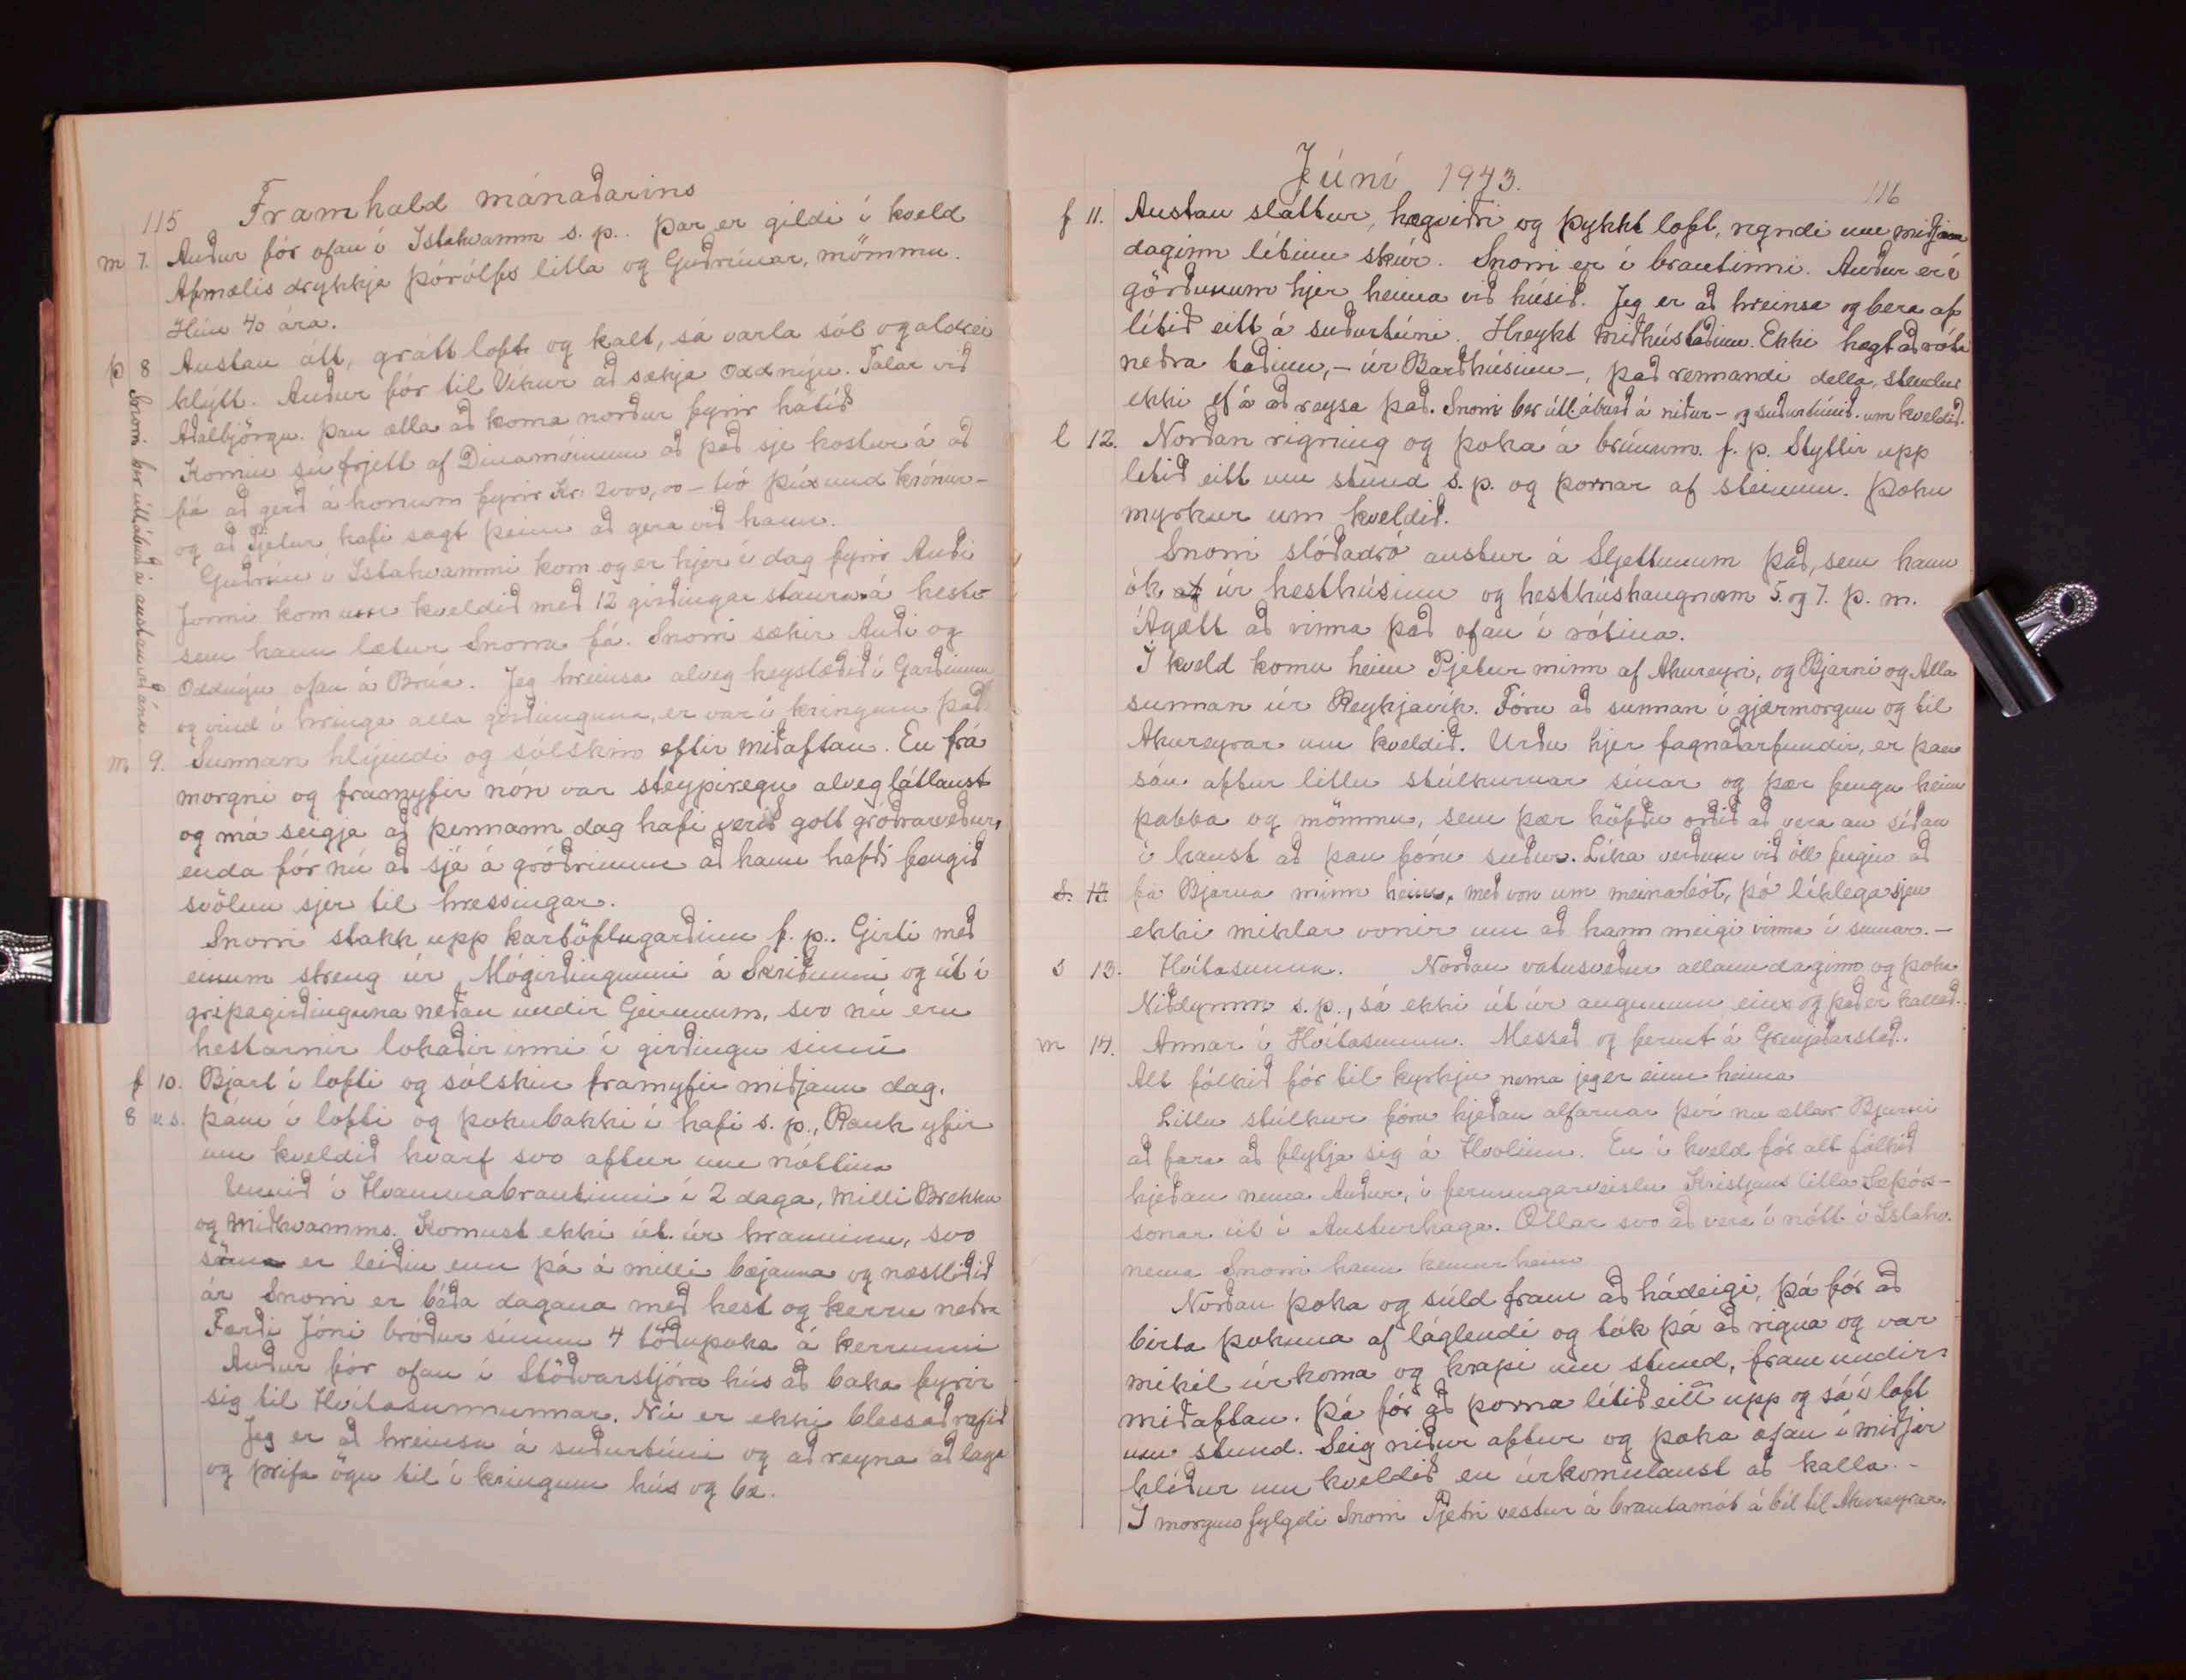 115 Framhald mánaðarins
m 7. Auður fór ofan í Ystahvamm s. p.. Þar er gildi í kveld
Afmælis drykkja Þórólfs litla og Guðrúnar, mömmu.
Hún 40 ára.
þ 8 Austan átt, grátt loft og kalt, sá varla sól og aldrei
hlýtt. Auður fór til Víkur að sækja Oddnýju. Talar við
Aðalbjörgu. Þau ætla að koma norður fyrir hátíð
Komin sú frjett af Dinamóinum að það sje kostur á að
fá að gerð á honum fyrir Kr. 2000,00 - tvö þúsund krónur -
og að Pjetur hafi sagt þeim að gera við hann.
Guðrún í Ystahvammi kom og er hjer í dag fyrir Auði
Jonni kom um kveldið með 12 girðingar staura á hesti
sem hann lætur Snorra fá. Snorri sækir Auði og
Oddnýju ofan á Brúa. Jeg hreinsa alveg heystæðið í Garðinum
og vind í hringa alla girðinguna, er var í kringum það.
Snorri ber útl. áburð á austan við ána
m. 9. Sunnan hlýindi og sólskin eftir miðaftan. En frá
morgni og framyfir nón var steypiregn alveg látlaust
og má seigja að þennann dag hafi verið gott gróðrarveður,
enda fór nú að sjá á gróðrinum að hann hafði fengið
svölun sjer til hressingar.
Snorri stakk upp kartöflugarðinn f. p.. Girti með
einum streng úr Mógirðingunni á Skriðunni og út í
gripagirðinguna neðan undir Geirunum, svo nú eru
hestarnir lokaðir inni í girðingu sinni
f 10. Bjart í lofti og sólskin framyfir miðjann dag.
8 v.s. þám í lofti og þokubakki í hafi s. p., Rauk yfir
um kveldið hvarf svo aftur um nóttina
Unnið í Hvammabrautinni í 2 daga, milli Brekku
og Miðhvamms. Komust ekki út úr hrauninu, svo
söm er leiðin enn þá á milli bæjanna og næstliðið
ár Snorri er báða dagana með hest og kerru neðra
Færði Jóni bróður sínum 4 töðupoka á kerrunni
Auður fór ofan í Stöðvarstjóra hús að baka fyrir
sig til Hvítasunnunnar. Nú er ekki blessað rafið
Jeg er að hreinsa á suðurtúni og að reyna að laga
og þrífa ögn til í kringum hús og bæ.
Júní 1943.
116
f 11. Austan sláttur, hægviðri og þykkt loft, rigndi um miðjann
daginn lítinn skúr. Snorri er í brautinni. Auður er í
görðunum hjer heima við húsið. Jeg er að hreinsa og bera af
lítið eitt á suðurtúni. Hreykt Miðhústaðinn. Ekki hægt að róta
neðra taðinu, - úr Barðhúsinu -, það rennandi della, stendur
ekki ef á að reysa það. Snorri ber útl. áburð á niður- og suðurtúnið um kveldið.
l 12. Norðan rigning og þoka á brúnum f. p. Styttir upp
lítið eitt um stund s. p. og þornar af steinum. Þoku
myrkur um kveldið.
Snorri slóðadró austur á Sljettunum það, sem hann
ók úr hesthúsinu og hesthúshaugnum 5. og 7. þ. m.
Ágætt að vinna það ofan í rótina.
Í kveld komu heim Pjetur minn af Akureyri, og Bjarni og Alla
sunnan úr Reykjavík. Fóru að sunnan í gjærmorgun og til
Akureyrar um kveldið. Urðu hjer fagnaðarfundir, er þau
sáu aftur litlu stúlkurnar sínar og þær fengu heim
pabba og mömmu, sem þær höfðu orðið að vera án síðan
í haust að þau fóru suður. Líka verðum við öll fegin að
fá Bjarna minn heim, með von um meinabót, þó líklega sjeu
ekki miklar vonir um að hann meigi vinna í sumar. -
s 13. Hvítasunna. Norðan vatnsveður allann daginn og þoka
Niðdymm s. p., sá ekki út úr augunum eins og það er kallað.
m 14. Annar í Hvítasunnu. Messað og fermt á Grenjaðarstað.
Alt fólkið fór til kyrkju nema jeg er einn heima
Litlu stúlkur fóru hjeðan alfarnar því nu ætlar Bjarni
að fara að flytja sig á Hvolinn. En í kveld fór alt fólkið
hjeðan nema Auður, í fermingarveislu Kristjáns litla Sæþórs-
sonar út í Austurhaga. Ætlar svo að vera í nótt í Ystahv.
nema Snorri hann kemur heim
Norðan þoka og súld fram að hádeigi, þá fór að
birta þokuna af láglendi og tók þá að rigna og var
mikil úrkoma og krapi um stund, fram undir
miðaftan. Þá fór að þorna lítið eitt upp og sá í loft
um stund. Seig niður aftur og þoka ofan í miðjar
hlíður um kveldið en úrkomulaust að kalla. -
Í morgun fylgdi Snorri Pjetri vestur á brautamót á bíl til Akureyrar.